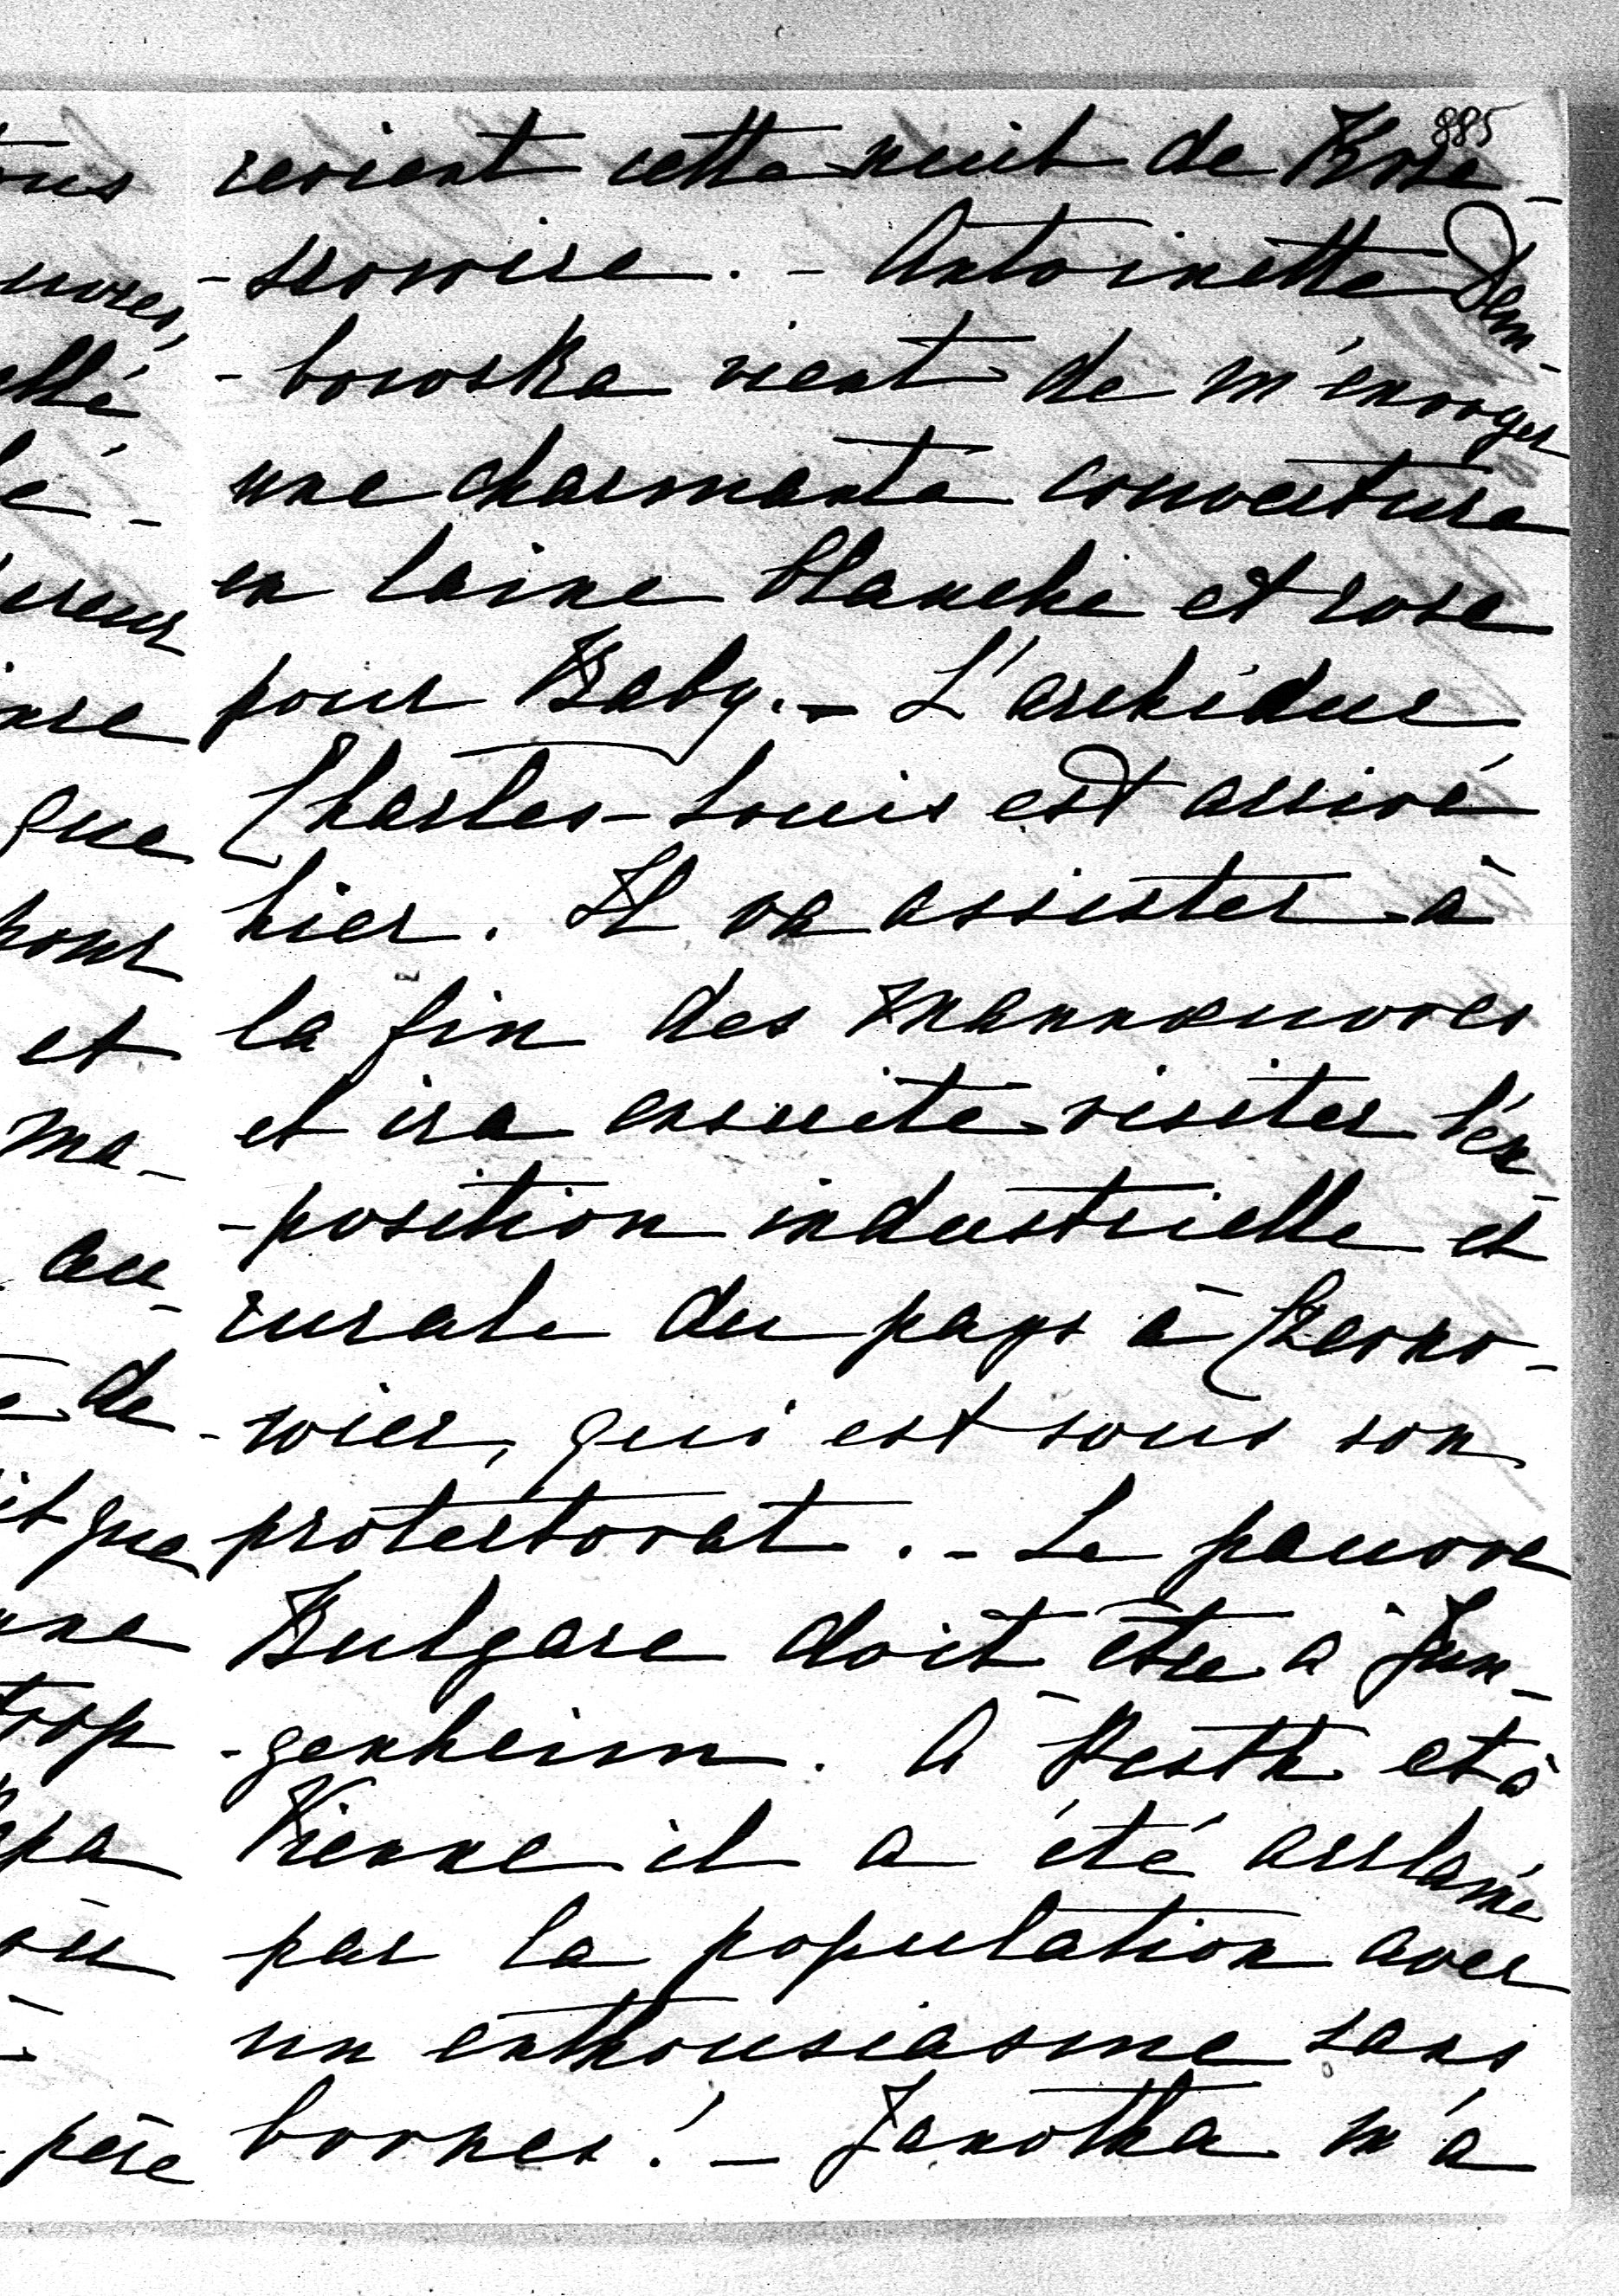 885
revient cette nuit de Krze-
-szowice. - Antoinette Dem-
-bowska vient de m'envoyer
une charmante couverture
en laine blanche et rose
pour Baby. - L'archiduc
Charles-Louis est arrivé
hier. Il va assister à
la fin des mannœuvres
et ira ensuite visiter l'ex-
-position industrielle et
rurale du pays à Czerno-
-wiec, qui est sous son
protectorat. - Le pauvre
Bulgare doit être à Jun-
-genheim. A Pesth et à
Vienne il a été acclamé
par la population avec
un enthousiasme sans
bornes! - Janotha m'a